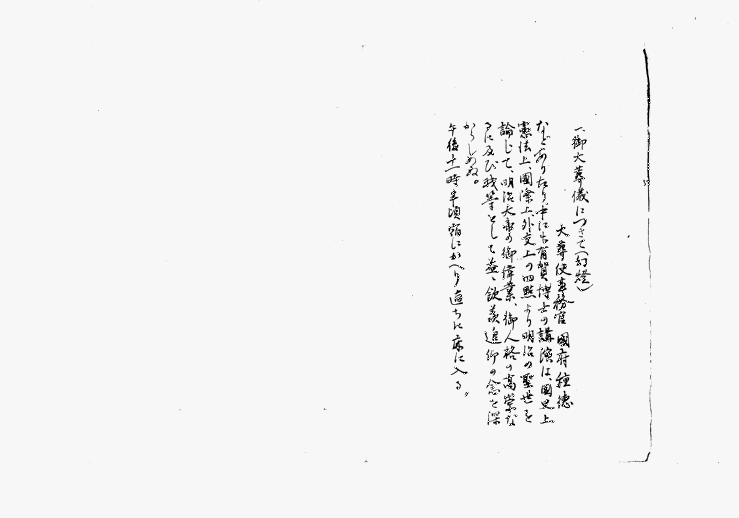 一、御大葬儀につきて(幻燈)
大葬使事務官 國府種德
などありたり中にも有賀博士の講演は、國史上、
憲法上、國際上、外交上の四點より明治の聖世を
論じて、明治大帝の御偉業、御人格の高崇な
るに及び我等をして益々欽羨追仰の念を深
からしめぬ。
午後十一時半頃宿にかへり直ちに床に入る。